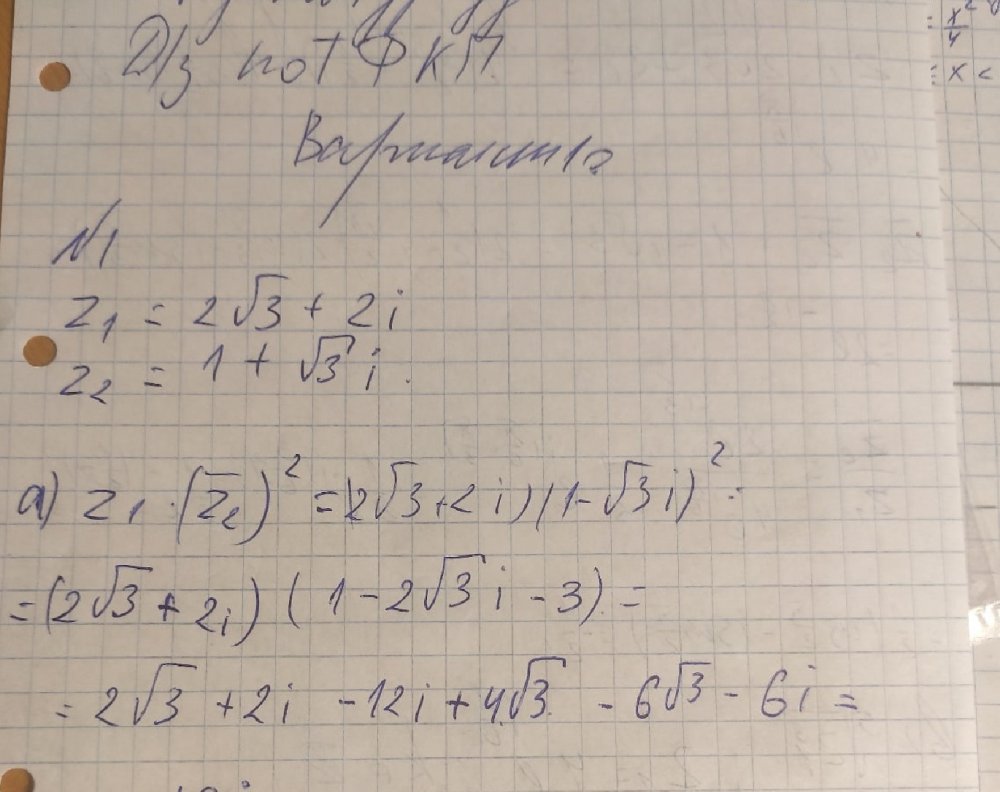 Д/з по ТФКП.
Вариант 12
№1
z₁ = 2√3 + 2i
z₂ = 1 + √3 i.
а) z₁·(z̅₂)² = (2√3+2i)(1-√3i)² =
= (2√3 + 2i) (1 - 2√3 i - 3) =
= 2√3 + 2i - 12i + 4√3 - 6√3 - 6i =
= x²/4
= x <